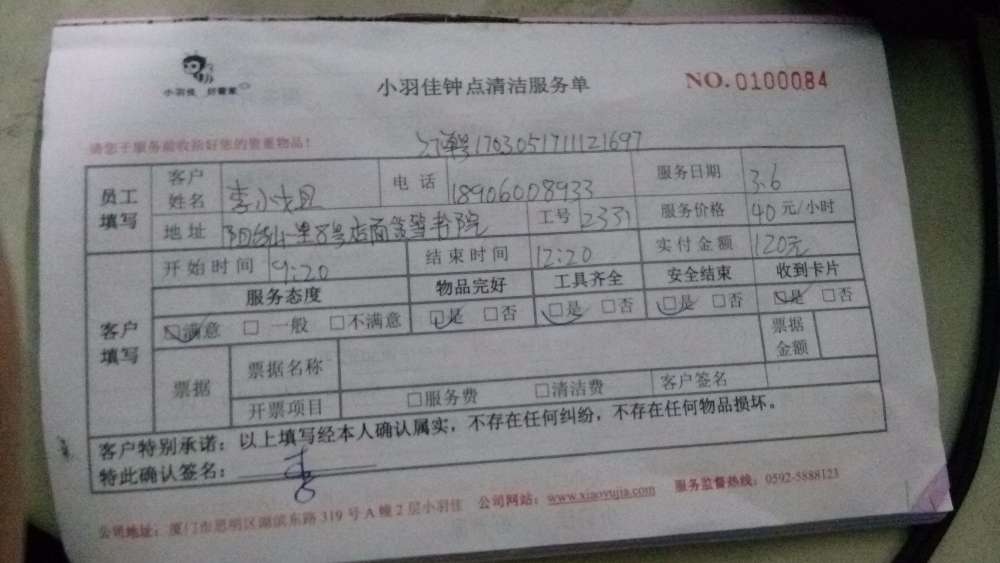 小羽佳 好管家
小羽佳钟点清洁服务单
NO. 0100084
请您于服务前收拾好您的贵重物品!
订单号170305171121697
员工填写 客户姓名 李小 电话 18906008933 服务日期 3.6
地址 阳台山里8号店面 书院 工号 2331 服务价格 40元/小时
开始时间 9:20 结束时间 12:20 实付金额 120元
客户填写 服务态度 物品完好 工具齐全 安全结束 收到卡片
☑满意 □一般 □不满意 ☑是 □否 ☑是 □否 ☑是 □否 ☑是 □否
票据 票据名称 票据金额
开票项目 □服务费 □清洁费 客户签名
客户特别承诺:以上填写经本人确认属实,不存在任何纠纷,不存在任何物品损坏。
特此确认签名:
公司地址:厦门市思明区湖滨东路319号A幢2层小羽佳 公司网站:www.xiaoyujia.com 服务监督热线:0592-5888123